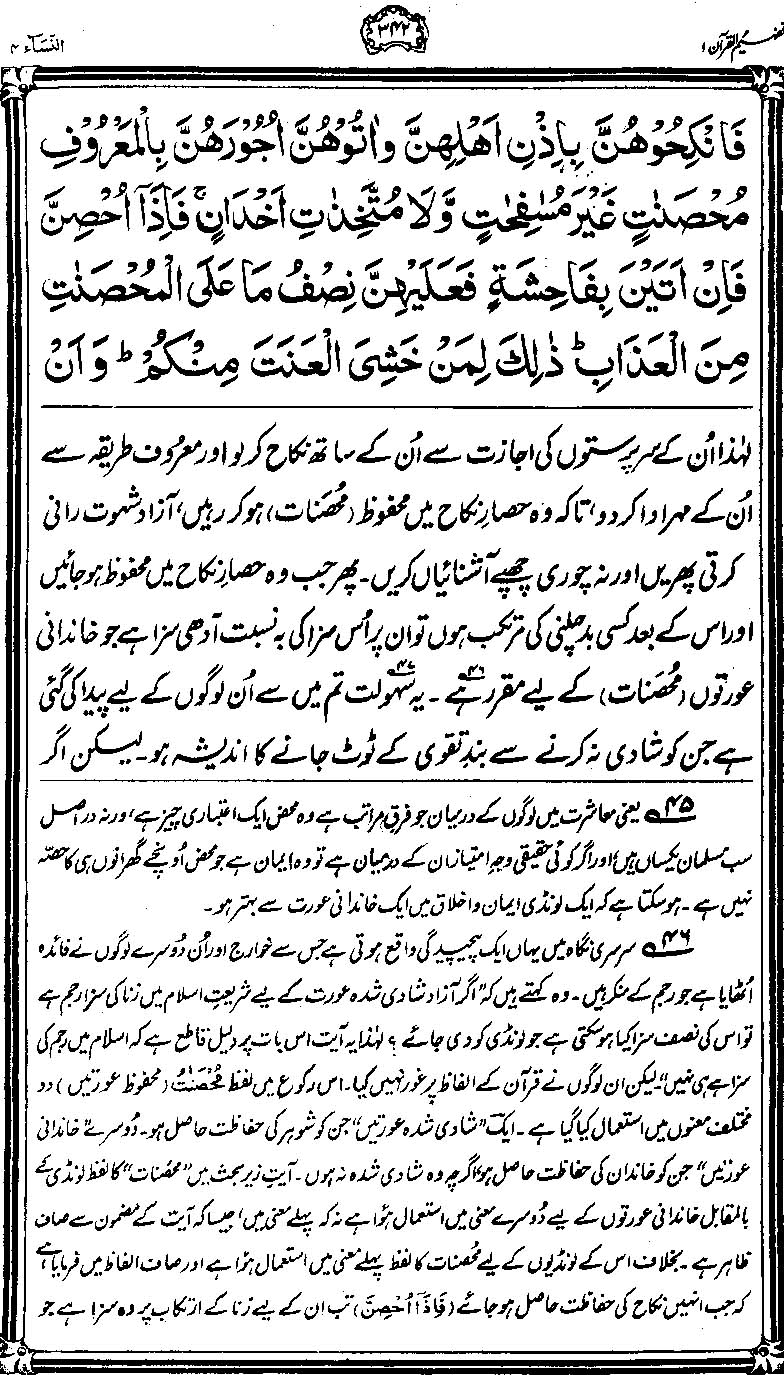 تفہیم القرآن ۱
۳۴۲
النساء ۴
فَانْكِحُوْهُنَّ بِاِذْنِ اَهْلِهِنَّ وَاٰتُوْهُنَّ اُجُوْرَهُنَّ بِالْمَعْرُوْفِ
مُحْصَنٰتٍ غَيْرَ مُسٰفِحٰتٍ وَّلَا مُتَّخِذٰتِ اَخْدَانٍ ۚ فَاِذَاۤ اُحْصِنَّ
فَاِنْ اَتَيْنَ بِفَاحِشَةٍ فَعَلَيْهِنَّ نِصْفُ مَا عَلَى الْمُحْصَنٰتِ
مِنَ الْعَذَابِ ؕ ذٰلِكَ لِمَنْ خَشِیَ الْعَنَتَ مِنْكُمْ ؕ وَ اَنْ
لہٰذا اُن کے سرپرستوں کی اجازت سے اُن کے ساتھ نکاح کر لو اور معروف طریقہ سے
اُن کے مہر ادا کر دو، تاکہ وہ حصارِ نکاح میں محفوظ (مُحصَنات) ہو کر رہیں، آزاد شہوت رانی
کرتی پھریں اور نہ چوری چھپے آشنائیاں کریں۔ پھر جب وہ حصارِ نکاح میں محفوظ ہو جائیں
اور اس کے بعد کسی بدچلنی کی مرتکب ہوں تو ان پر اُس سزا کی بہ نسبت آدھی سزا ہے جو خاندانی
عورتوں (مُحصَنات) کے لیے مقرر ہے۴۶۔ یہ سہولت۴۷ تم میں سے اُن لوگوں کے لیے پیدا کی گئی
ہے جن کو شادی نہ کرنے سے بندِ تقویٰ کے ٹوٹ جانے کا اندیشہ ہو۔ لیکن اگر
۴۵ یعنی معاشرت میں لوگوں کے درمیان جو فرقِ مراتب ہے وہ محض ایک اعتباری چیز ہے، ورنہ دراصل
سب مسلمان یکساں ہیں، اور اگر کوئی حقیقی وجہِ امتیاز ان کے درمیان ہے تو وہ ایمان ہے جو محض اُونچے گھرانوں ہی کا حصّہ
نہیں ہے۔ ہو سکتا ہے کہ ایک لونڈی ایمان و اخلاق میں ایک خاندانی عورت سے بہتر ہو۔
۴۶ سرسری نگاہ میں یہاں ایک پیچیدگی واقع ہوتی ہے جس سے خوارج اور اُن دُوسرے لوگوں نے فائدہ
اُٹھایا ہے جو رجم کے منکر ہیں۔ وہ کہتے ہیں کہ "اگر آزاد شادی شدہ عورت کے لیے شریعتِ اسلام میں زنا کی سزا رجم ہے
تو اس کی نصف سزا کیا ہو سکتی ہے جو لونڈی کو دی جائے؟ لہٰذا یہ آیت اس بات پر دلیلِ قاطع ہے کہ اسلام میں رجم کی
سزا ہے ہی نہیں"۔ لیکن ان لوگوں نے قرآن کے الفاظ پر غور نہیں کیا۔ اس رکوع میں لفظ مُحْصَنٰتُ (محفوظ عورتیں) دو
مختلف معنوں میں استعمال کیا گیا ہے۔ ایک "شادی شدہ عورتیں" جن کو شوہر کی حفاظت حاصل ہو۔ دُوسرے "خاندانی
عورتیں" جن کو خاندان کی حفاظت حاصل ہو، اگرچہ وہ شادی شدہ نہ ہوں۔ آیتِ زیرِ بحث میں "محصنات" کا لفظ لونڈی کے
بالمقابل خاندانی عورتوں کے لیے دُوسرے معنی میں استعمال ہُوا ہے نہ کہ پہلے معنی میں، جیسا کہ آیت کے مضمون سے صاف
ظاہر ہے۔ بخلاف اس کے لونڈیوں کے لیے محصنات کا لفظ پہلے معنی میں استعمال ہُوا ہے اور صاف الفاظ میں فرمایا ہے
کہ جب انہیں نکاح کی حفاظت حاصل ہو جائے (فَاِذَاۤ اُحْصِنَّ) تب ان کے لیے زنا کے ارتکاب پر وہ سزا ہے جو